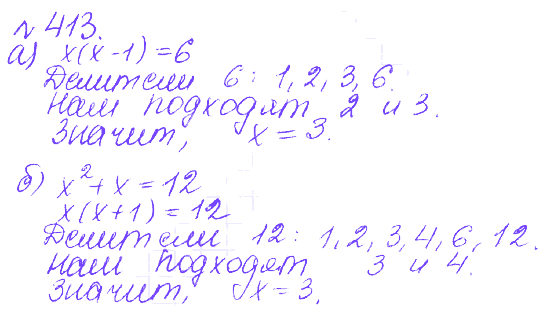 № 413.
а) x(x-1)=6
Делители 6: 1, 2, 3, 6.
Нам подходят 2 и 3.
Значит, x=3.
б) x²+x=12
x(x+1)=12
Делители 12: 1, 2, 3, 4, 6, 12.
Нам подходят 3 и 4.
Значит, x=3.